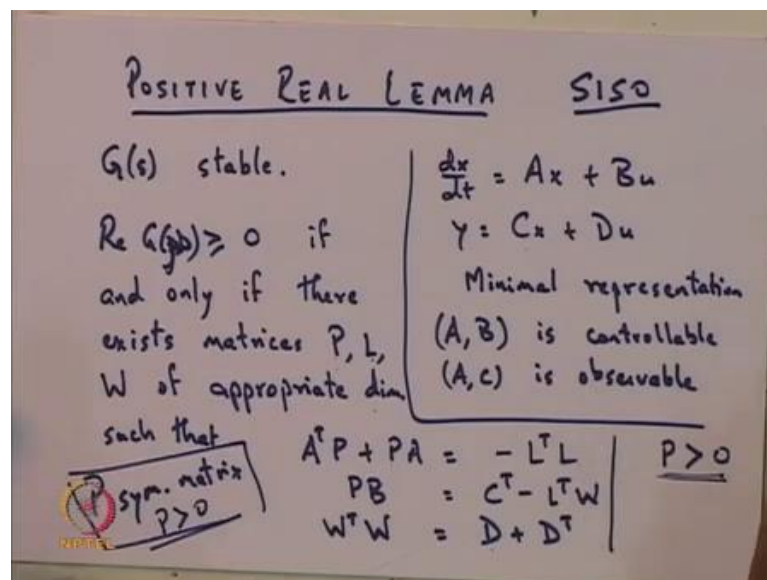 POSITIVE REAL LEMMA SISO
G(s) stable.
Re G(jω) ≥ 0 if
and only if there
exists matrices P, L,
W of appropriate dim.
such that
P sym. matrix
P > 0
dx/dt = Ax + Bu
y = Cx + Du
Minimal representation
(A, B) is controllable
(A, C) is observable
AᵀP + PA = - LᵀL
PB = Cᵀ - LᵀW
WᵀW = D + Dᵀ
P > 0
NPTEL